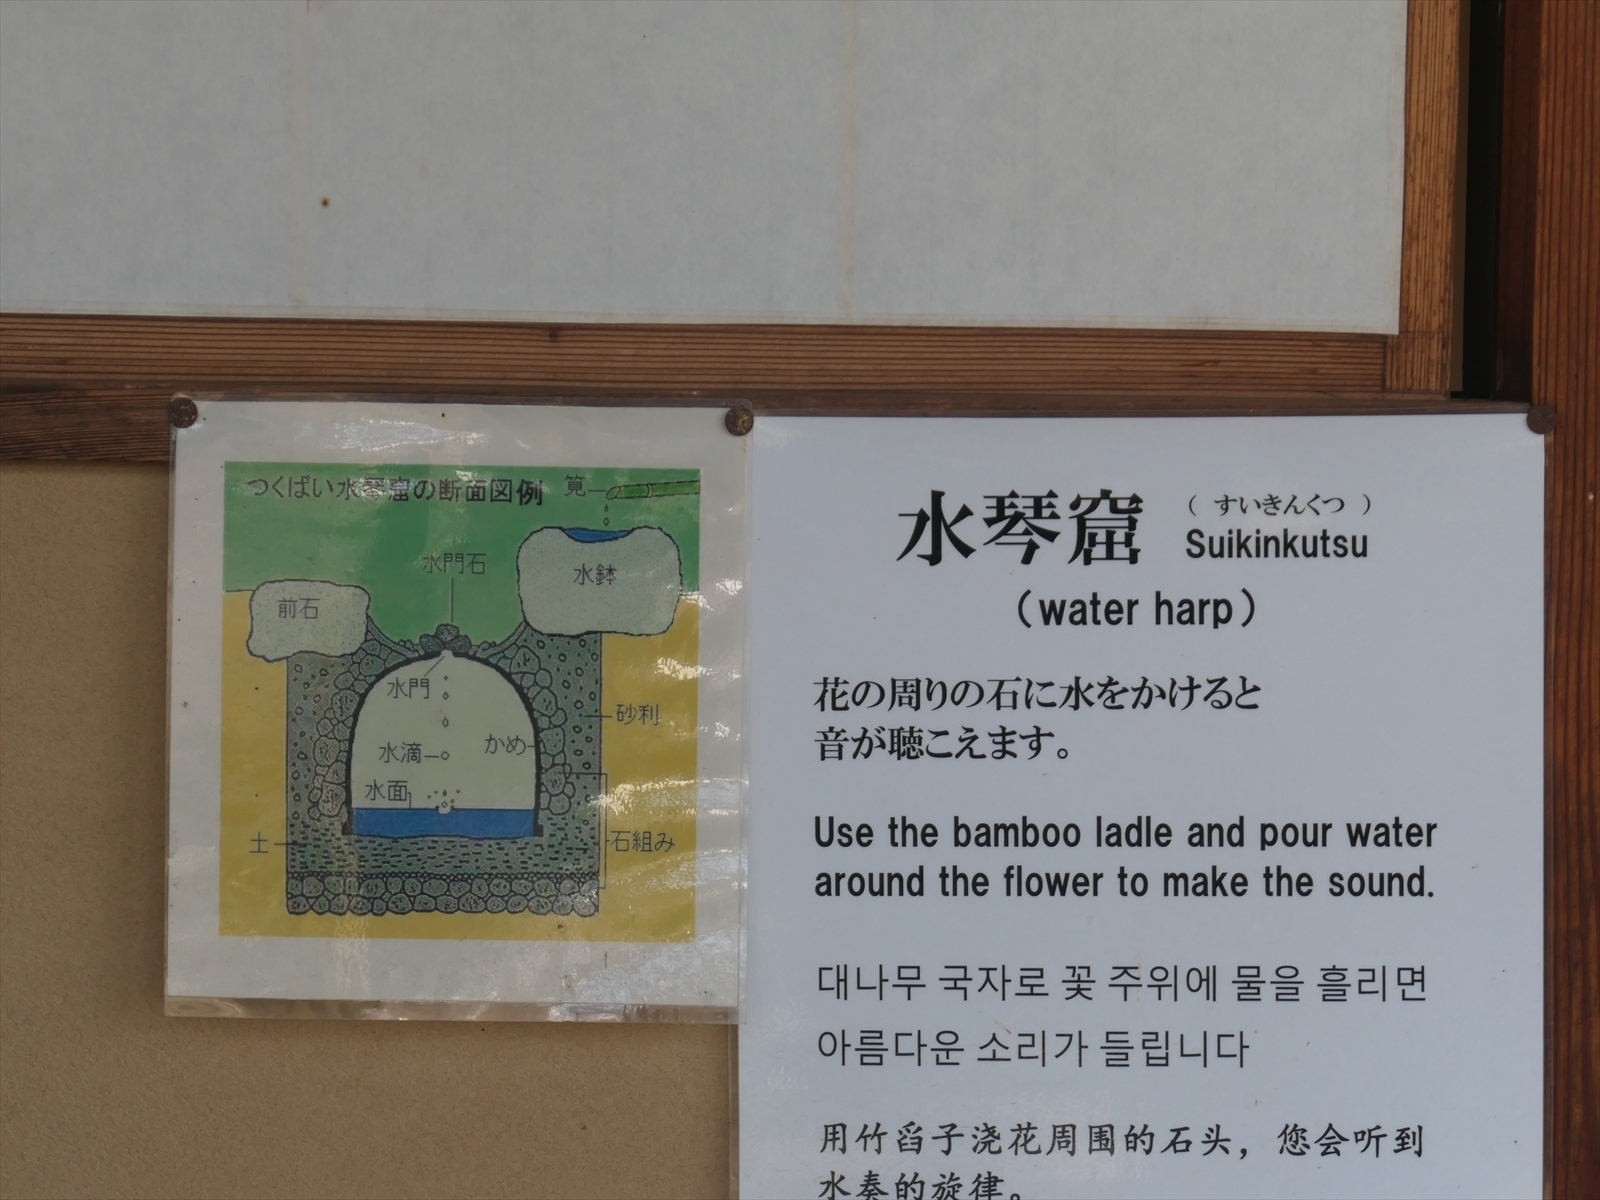 つくばい水琴窟の断面図例
筧
水門石
水鉢
前石
水門
砂利
水滴
かめ
水面
土
石組み
水琴窟
( すいきんくつ )
Suikinkutsu
(water harp)
花の周りの石に水をかけると
音が聴こえます。
Use the bamboo ladle and pour water
around the flower to make the sound.
대나무 국자로 꽃 주위에 물을 흘리면
아름다운 소리가 들립니다
用竹舀子浇花周围的石头，您会听到
水奏的旋律。